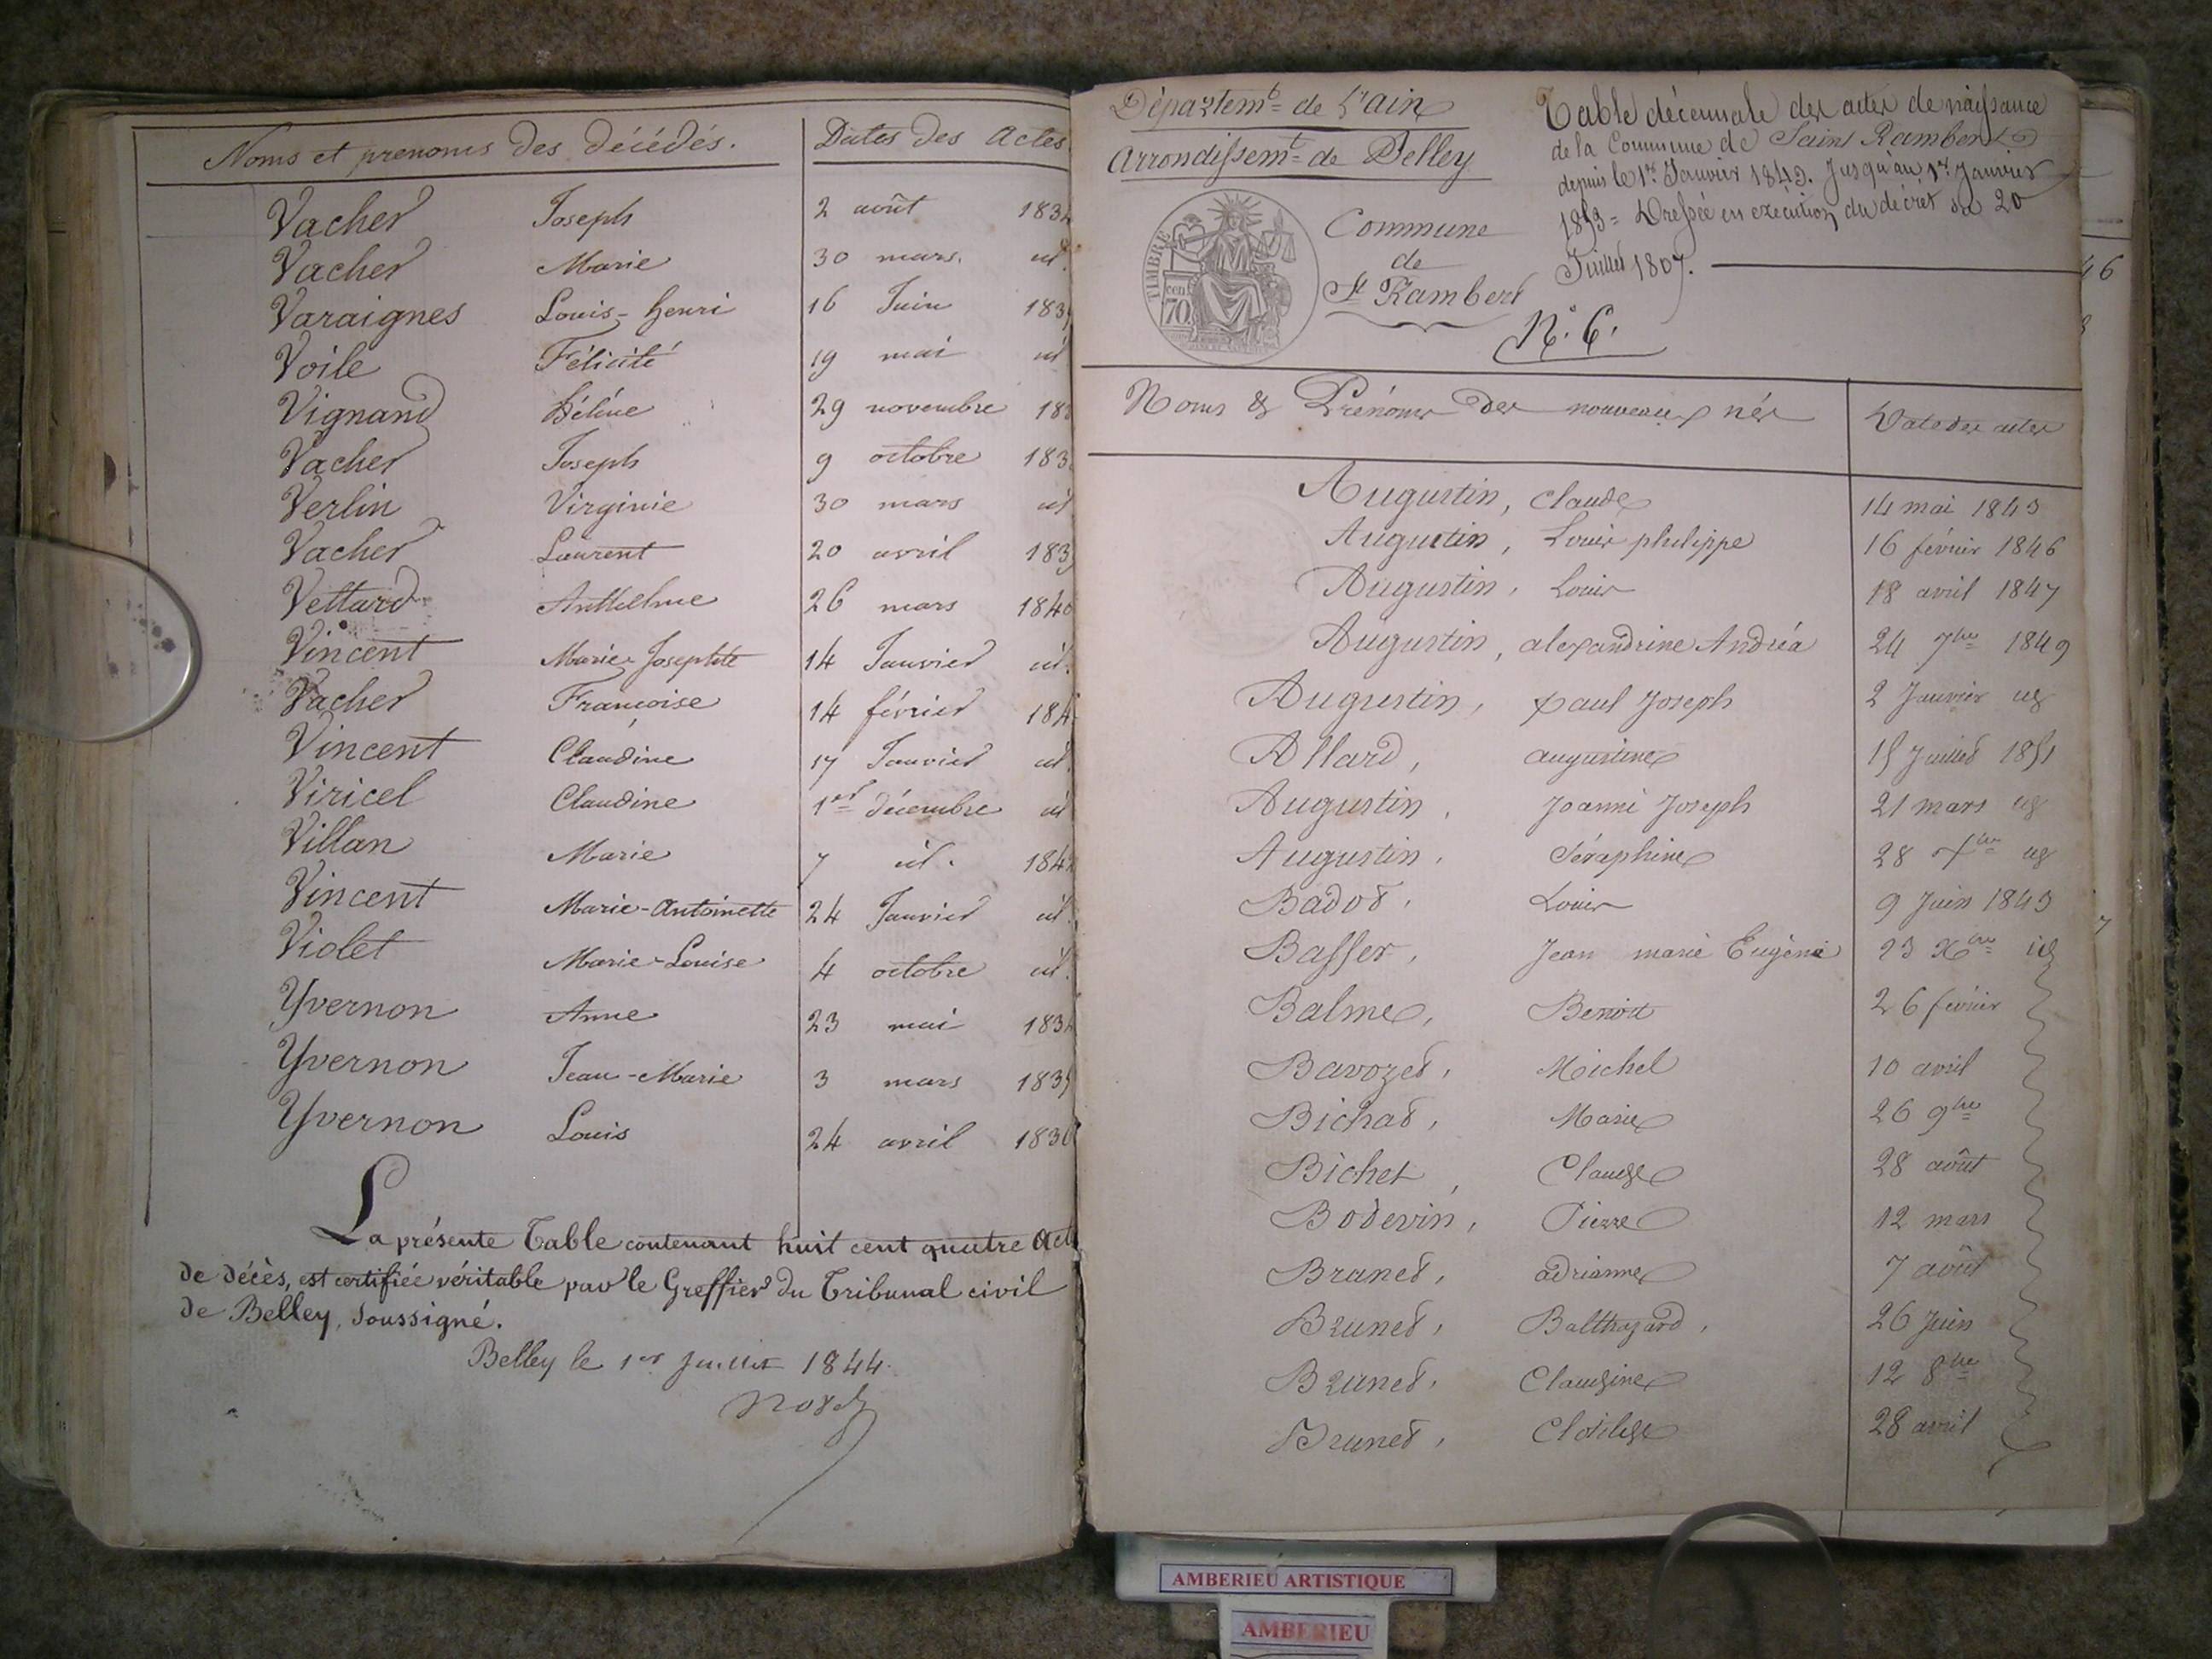 Noms et prenoms des décédés. Dates des Actes
Vacher Joseph 2 août
Vacher Marie 30 mars. id.
Varaignes Louis-henri 16 Juin
Voile Félicité 19 mai id
Vignand Héléne 29 novembre
Vacher Joseph 9 octobre
Verlin Virginie 30 mars id
Vacher Laurent 20 avril
Vettard Anthelme 26 mars 1840
Vincent Marie-Josephte 14 Janvier id.
Vacher Françoise 14 février
Vincent Claudine 17 Janvier id.
Viricel Claudine 1er décembre id
Villan Marie 7 id. 1842
Vincent Marie-Antoinette 24 Janvier id.
Violet Marie-Louise 4 octobre id.
Yvernon Anne 23 mai
Yvernon Jean-Marie 3 mars 1835
Yvernon Louis 24 avril 1836
La présente Table contenant huit cent quatre Act
de décès, est certifiée véritable par le Greffier du Tribunal civil
de Belley, soussigné.
Belley le 1er Juillet 1844.
Départemt de l'ain
Arrondissemt de Belley
Commune
de
St Rambert
TIMBRE
cent
70
Table décennale des actes de naissance
de la Commune de Saint Rambert
depuis le 1er Janvier 1843. Jusqu'au 1er Janvier
1853 = Dressée en exécution du décret du 20
Juillet 1807.
N.° 6.
Noms & Prénoms des nouveaux nés Date des actes
Augustin, Claude 14 mai 1843
Augustin, Louis philippe 16 février 1846
Augustin, Louis 18 avril 1847
Augustin, alexandrine Andréa 24 7bre 1849
Augustin, paul Joseph 2 Janvier id
Allard, augustine 15 Juillet 1851
Augustin, Joanni Joseph 21 mars id
Augustin, Séraphine 28 id
Badot, Louis 9 Juin 1843
Basser, Jean marie Eugène 23 Xbre id
Balme, Benoit 26 février
Bavozet, Michel 10 avril
Bichat, Marie 26 9bre
Bichet, Claude 28 août
Bodevin, Pierre 12 mars
Brunet, adrianne 7 août
Brunet, Balthazard, 26 Juin
Brunet, Claudine 12 8bre
Brunet, Clotilde 28 avril
46
7
AMBERIEU ARTISTIQUE
AMBERIEU